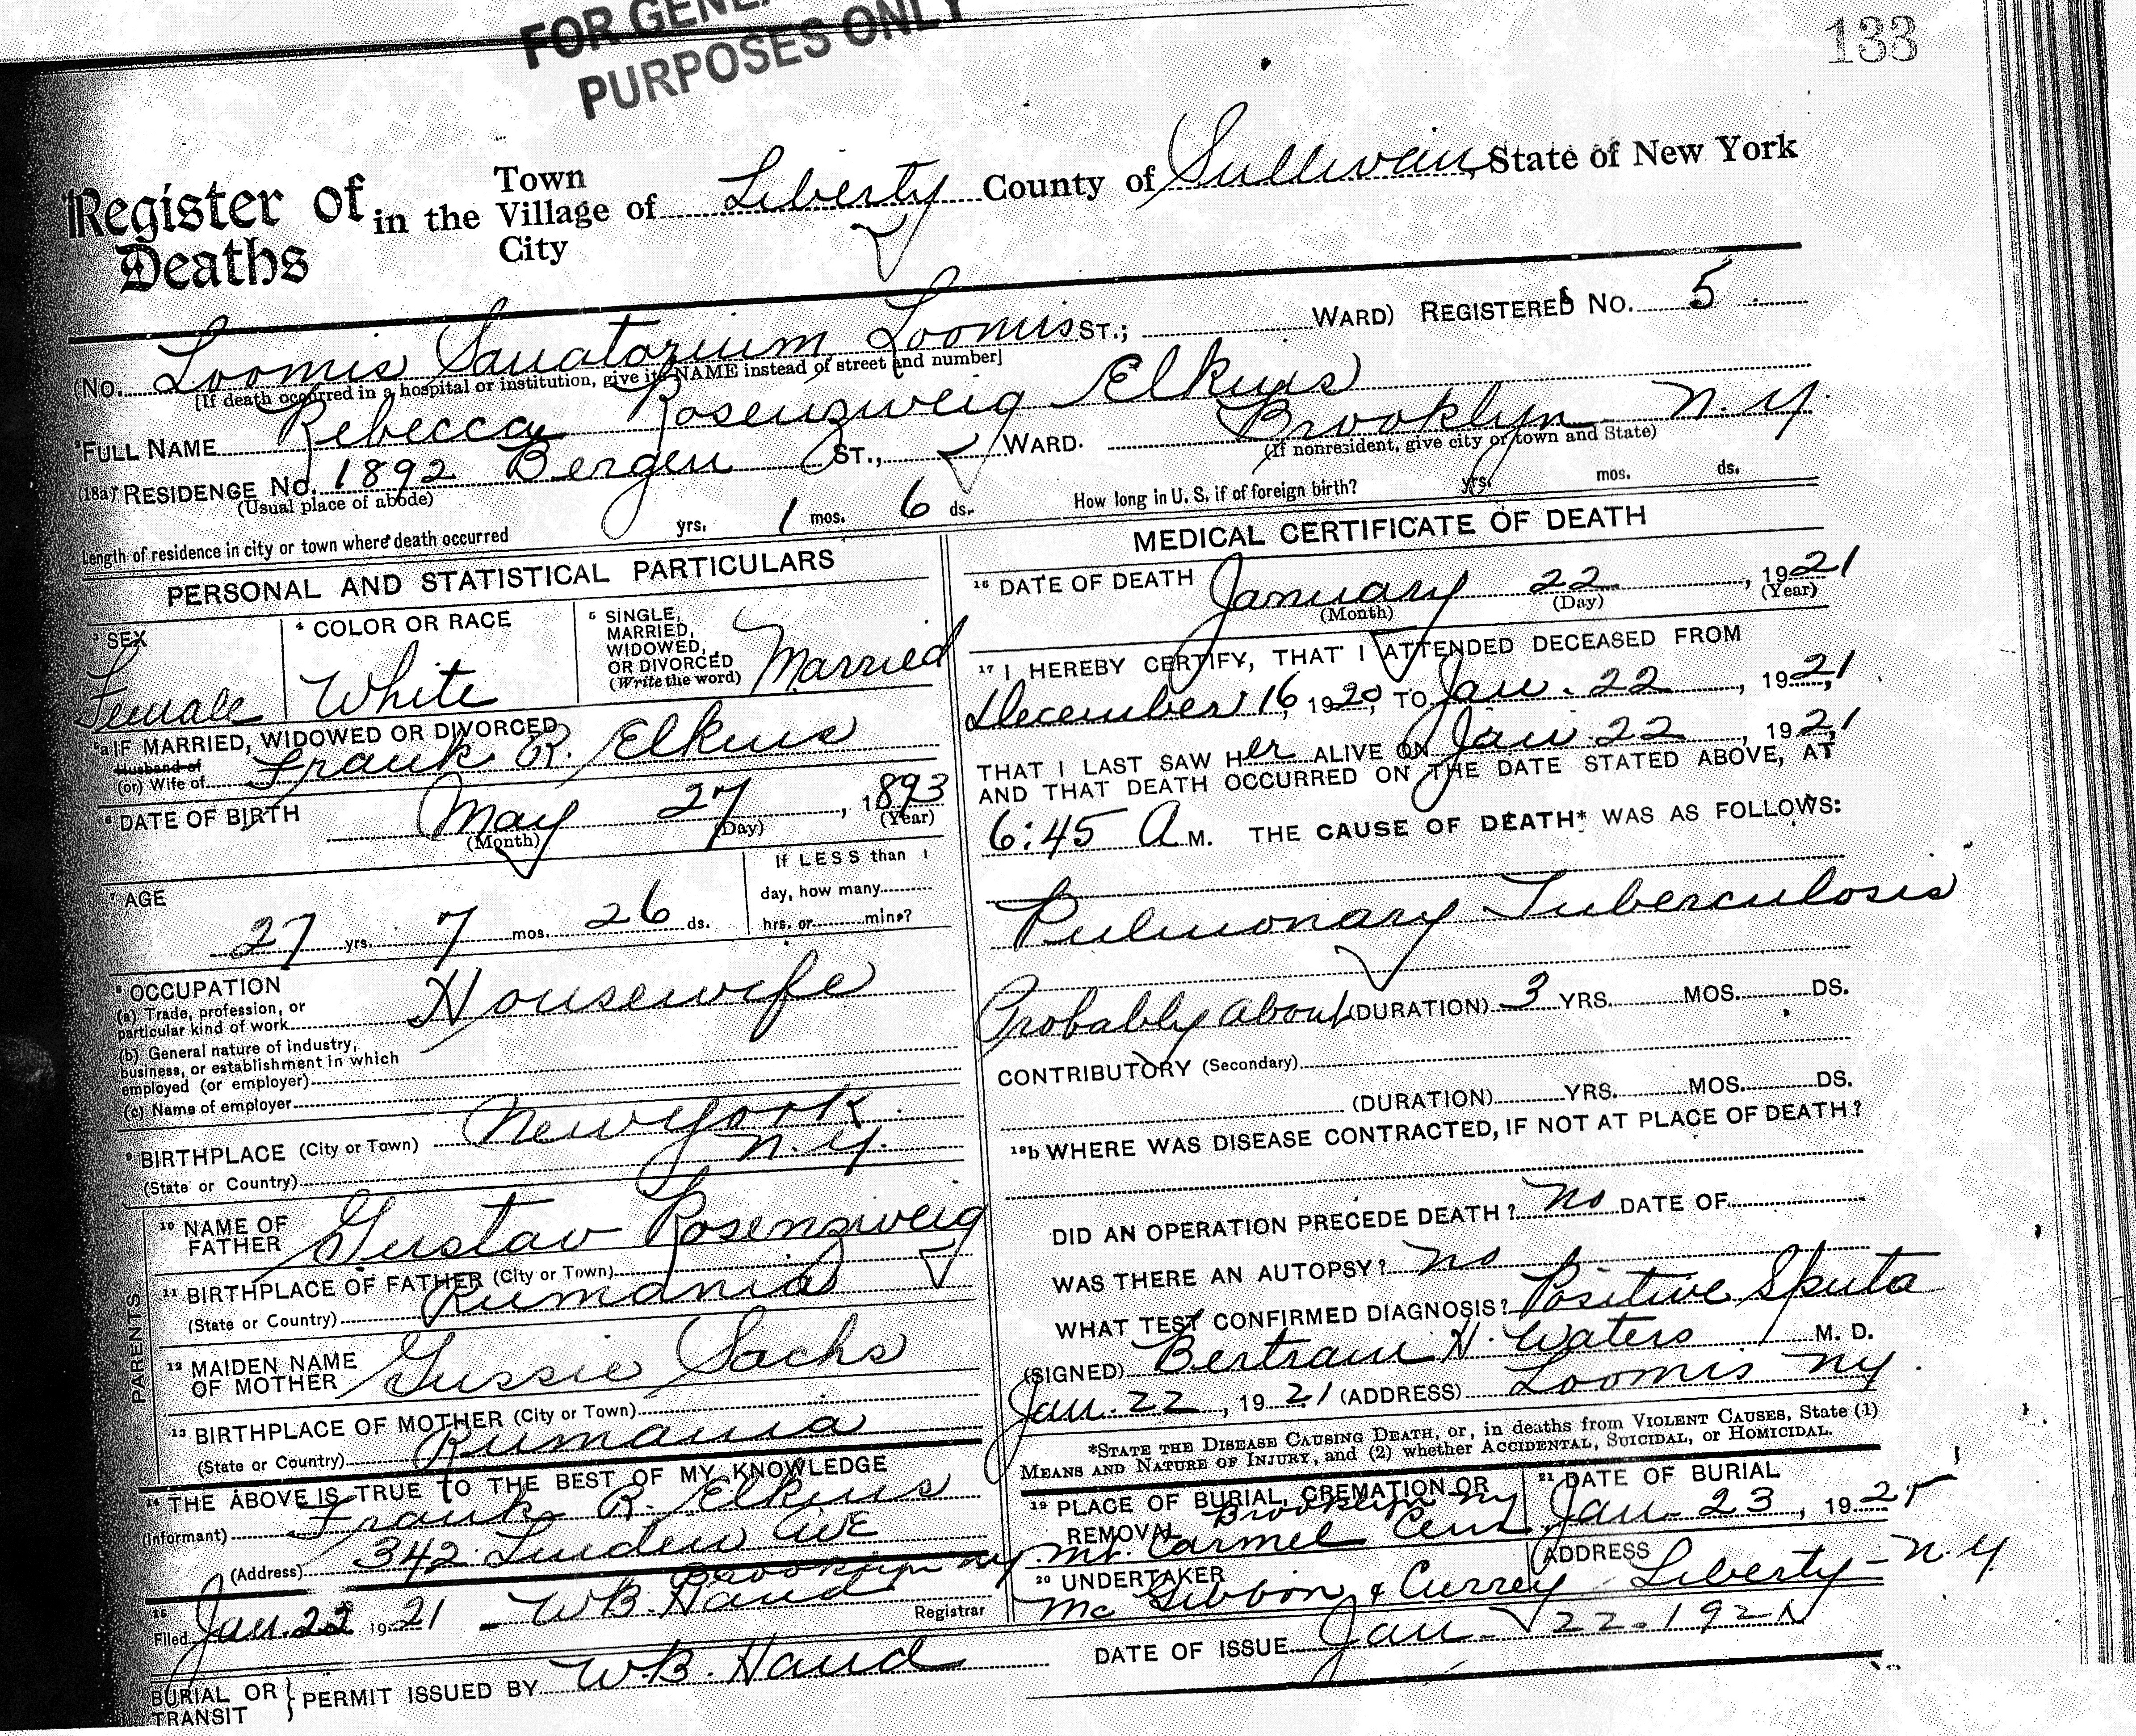 FOR GENE
PURPOSES ONLY
133
Register of Deaths in the Town Village City of Liberty County of Sullivan, State of New York
(No. Loomis Sanatorium, Loomis ST.; WARD) REGISTERED NO. 5
[If death occurred in a hospital or institution, give its NAME instead of street and number]
FULL NAME Rebecca Rosenzweig Elkins
(18a) RESIDENCE No. 1892 Bergen ST., WARD. Brooklyn N.Y.
(Usual place of abode) (If nonresident, give city or town and State)
Length of residence in city or town where death occurred yrs. 1 mos. 6 ds. How long in U. S. if of foreign birth? yrs. mos. ds.
PERSONAL AND STATISTICAL PARTICULARS
3 SEX
Female
4 COLOR OR RACE
White
5 SINGLE,
MARRIED,
WIDOWED,
OR DIVORCED
(Write the word)
Married
5a IF MARRIED, WIDOWED OR DIVORCED
Husband of
(or) Wife of Frank R. Elkins
6 DATE OF BIRTH May 27, 1893
(Month) (Day) (Year)
7 AGE
27 yrs. 7 mos. 26 ds.
If LESS than 1
day, how many
hrs. or mins?
8 OCCUPATION
(a) Trade, profession, or
particular kind of work Housewife
(b) General nature of industry,
business, or establishment in which
employed (or employer)
(c) Name of employer
9 BIRTHPLACE (City or Town) New York
(State or Country) N.Y.
PARENTS
10 NAME OF
FATHER Gustav Rosenzweig
11 BIRTHPLACE OF FATHER (City or Town)
(State or Country) Rumania
12 MAIDEN NAME
OF MOTHER Gussie Sachs
13 BIRTHPLACE OF MOTHER (City or Town)
(State or Country) Rumania
14 THE ABOVE IS TRUE TO THE BEST OF MY KNOWLEDGE
(Informant) Frank R. Elkins
(Address) 342 Linden Ave
Brooklyn NY
15
Filed Jan. 22 1921 W B. Hand Registrar
MEDICAL CERTIFICATE OF DEATH
16 DATE OF DEATH January 22, 1921
(Month) (Day) (Year)
17 I HEREBY CERTIFY, THAT I ATTENDED DECEASED FROM
December 16, 1920, TO Jan. 22, 1921,
THAT I LAST SAW Her ALIVE ON Jan. 22, 1921,
AND THAT DEATH OCCURRED ON THE DATE STATED ABOVE, AT
6:45 A M. THE CAUSE OF DEATH* WAS AS FOLLOWS:
Pulmonary Tuberculosis
Probably about (DURATION) 3 YRS. MOS. DS.
CONTRIBUTORY (Secondary)
(DURATION) YRS. MOS. DS.
18b WHERE WAS DISEASE CONTRACTED, IF NOT AT PLACE OF DEATH?
DID AN OPERATION PRECEDE DEATH? No DATE OF
WAS THERE AN AUTOPSY? No
WHAT TEST CONFIRMED DIAGNOSIS? Positive Sputa
(SIGNED) Bertram H. Waters M. D.
Jan. 22, 1921 (ADDRESS) Loomis NY.
*STATE THE DISEASE CAUSING DEATH, or, in deaths from VIOLENT CAUSES, State (1)
MEANS AND NATURE OF INJURY, and (2) whether ACCIDENTAL, SUICIDAL, or HOMICIDAL.
19 PLACE OF BURIAL, CREMATION OR
REMOVAL Brooklyn NY
Mt. Carmel Cem
21 DATE OF BURIAL
Jan. 23, 192
20 UNDERTAKER
Mc Gibbon & Currey
ADDRESS
Liberty - N.Y.
BURIAL OR TRANSIT } PERMIT ISSUED BY W.B. Hand DATE OF ISSUE Jan - 22 - 1921